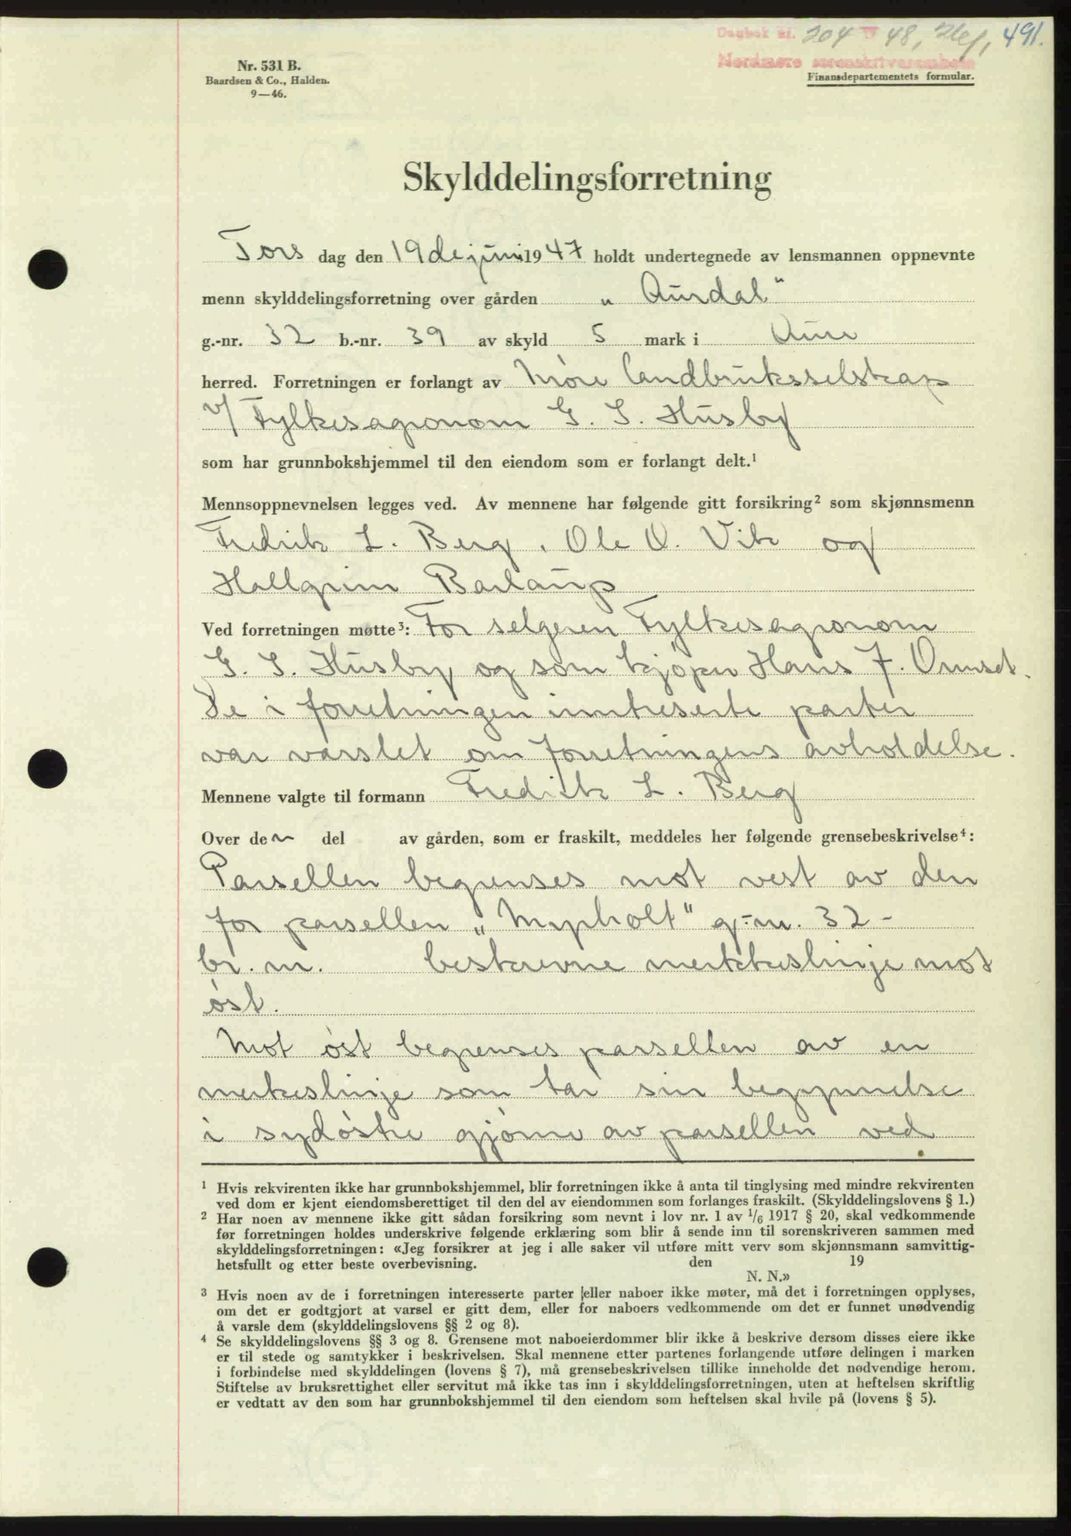 Dagbok nr. 204 19 48, Hef, 491.
Nordmøre sorenskriverembete
Nr. 531 B.
Baardsen & Co., Halden.
9—46.
Finansdepartementets formular.
Skylddelingsforretning
Tors dag den 19de juni 1947 holdt undertegnede av lensmannen oppnevnte
menn skylddelingsforretning over gården „Aurdal"
g.-nr. 32 b.-nr. 39 av skyld 5 mark i Aure
herred. Forretningen er forlangt av Møre landbruksselskap
v/ Fylkesagronom G. S. Husby
som har grunnbokshjemmel til den eiendom som er forlangt delt.¹
Mennsoppnevnelsen legges ved. Av mennene har følgende gitt forsikring² som skjønnsmenn
Fredrik L. Berg, Ole O. Vik og
Hallgrim Barlaup
Ved forretningen møtte³: For selgeren Fylkesagronom
G. S. Husby og som kjøper Hans J. Ormset.
De i forretningen inntreserte parter
var varslet om forretningens avholdelse.
Mennene valgte til formann Fredrik L. Berg
Over den del av gården, som er fraskilt, meddeles her følgende grensebeskrivelse⁴:
Parsellen begrenses mot vest av den
for parsellen „Myrholt" g.-nr. 32 -
br. nr. beskrevne merkkeslinje mot
øst.
Mot øst begrenses parsellen av en
merkeslinje som tar sin begynnelse
i sydøstre gjørne av parsellen ved
¹ Hvis rekvirenten ikke har grunnbokshjemmel, blir forretningen ikke å anta til tinglysing med mindre rekvirenten
ved dom er kjent eiendomsberettiget til den del av eiendommen som forlanges fraskilt. (Skylddelingslovens § 1.)
² Har noen av mennene ikke gitt sådan forsikring som nevnt i lov nr. 1 av 1/6 1917 § 20, skal vedkommende
før forretningen holdes underskrive følgende erklæring som blir å sende inn til sorenskriveren sammen med
skylddelingsforretningen: «Jeg forsikrer at jeg i alle saker vil utføre mitt verv som skjønnsmann samvittig-
hetsfullt og etter beste overbevisning. den 19
N. N.»
³ Hvis noen av de i forretningen interesserte parter eller naboer ikke møter, må det i forretningen opplyses,
om det er godtgjort at varsel er gitt dem, eller for naboers vedkommende om det er funnet unødvendig
å varsle dem (skylddelingslovens §§ 2 og 8).
⁴ Se skylddelingslovens §§ 3 og 8. Grensene mot naboeierdommer blir ikke å beskrive dersom disses eiere ikke
er til stede og samtykker i beskrivelsen. Skal mennene etter partenes forlangende utføre delingen i marken
i forbindelse med skylddelingen (lovens § 7), må grensebeskrivelsen tillike inneholde det nødvendige herom.
Stiftelse av bruksrettighet eller servitut må ikke tas inn i skylddelingsforretningen, uten at heftelsen skriftlig
er vedtatt av den som har grunnbokshjemmel til den eiendom som heftelsen skal hvile på (lovens § 5).